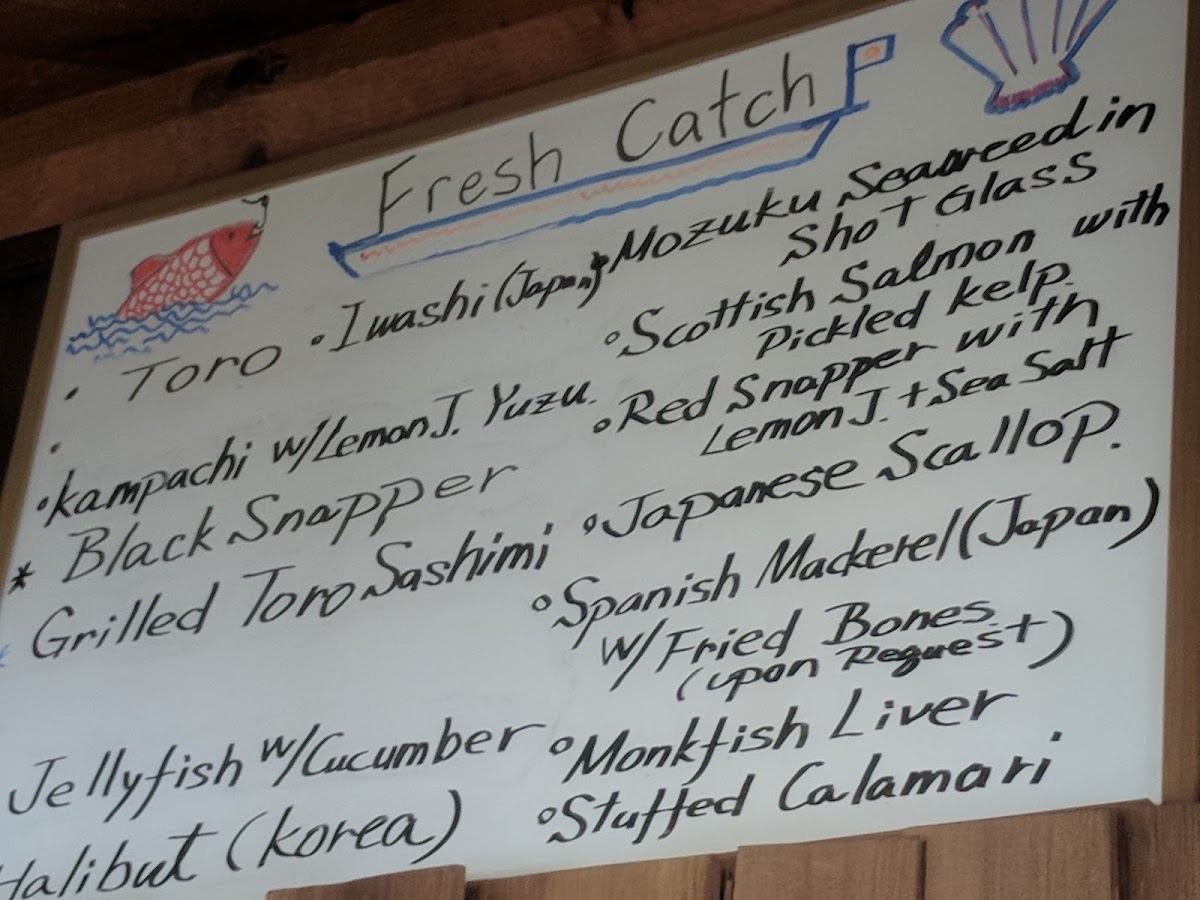 Fresh Catch
• Toro
• Iwashi (Japan)
•
• Kampachi w/Lemon J. Yuzu.
* Black Snapper
Grilled Toro Sashimi
Jellyfish w/Cucumber
Halibut (Korea)
Mozuku Seaweed in
Shot Glass
• Scottish Salmon with
Pickled Kelp.
• Red Snapper with
Lemon J. + Sea Salt
• Japanese Scallop.
• Spanish Mackerel (Japan)
w/ Fried Bones
(upon Request)
• Monkfish Liver
• Stuffed Calamari